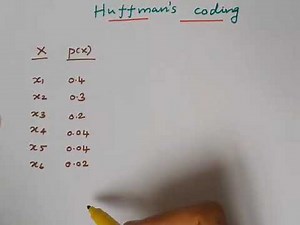 Huffman's coding
X p(x)
x1 0.4
x2 0.3
x3 0.2
x4 0.04
x5 0.04
x6 0.02